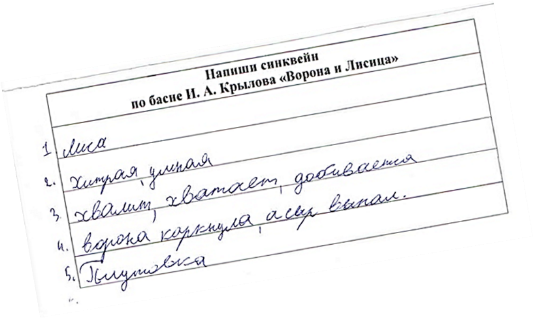 Напиши синквейн
по басне И. А. Крылова «Ворона и Лисица»
1 Лиса
2. хитрая, умная
3. хвалит, хватает, добивается
4. ворона каркнула, а сыр выпал.
5. Плутовка